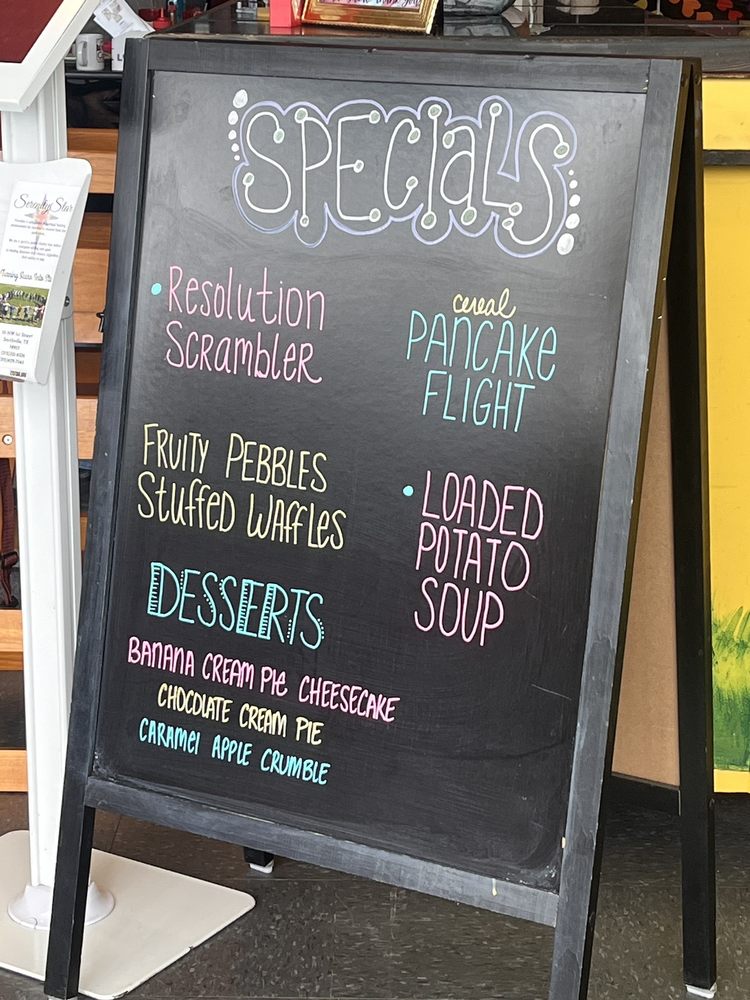 SPECIALS
Resolution
Scrambler
cereal
PANCAKE
FLIGHT
FRUITY PEBBLES
Stuffed WAffLES
LOADED
POTATO
SOUP
DESSERTS
BANANA CREAM PIE CHEESECAKE
CHOCOLATE CREAM PIE
CARAMEL APPLE CRUMBLE
Serenity Star
Turning Scars Into